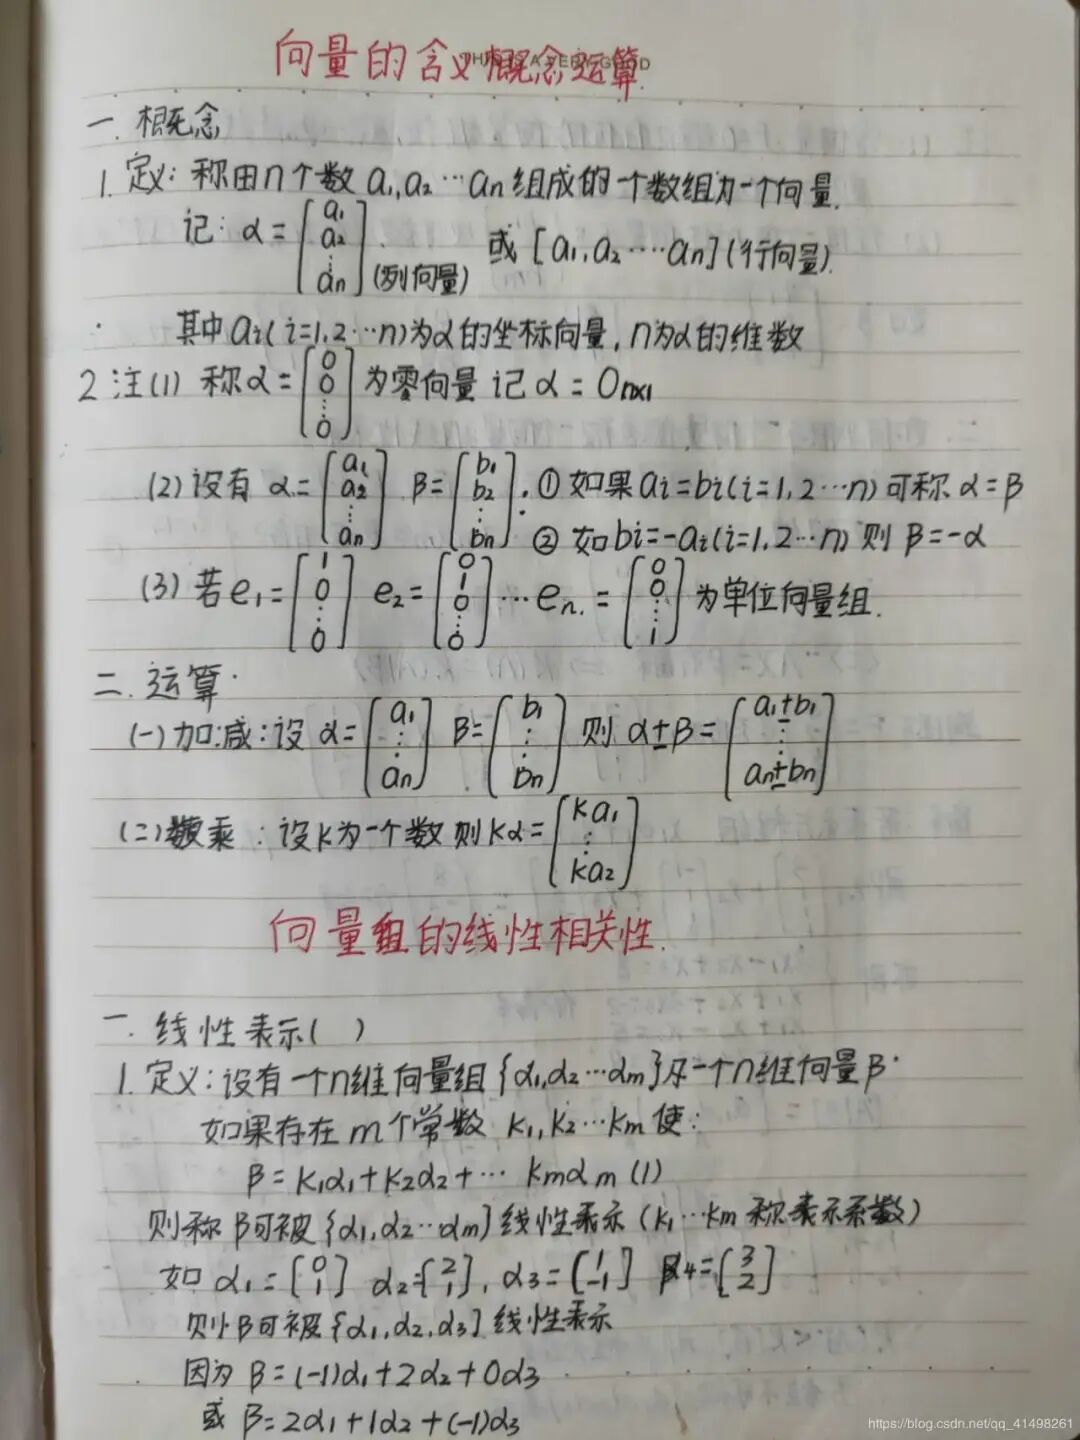 向量的含义概念运算
THIS IS A VERY GOOD
一. 概念
1. 定义: 称由n个数 a₁,a₂…an 组成的一个数组为一个向量.
记: α=[a₁ a₂ ⋮ an](列向量) 或 [a₁,a₂……an](行向量).
其中ai(i=1,2…n)为α的坐标向量, n为α的维数
2 注(1) 称α=[0 0 ⋮ 0]为零向量 记 α=0n×1
(2) 设有 α=[a₁ a₂ ⋮ an] β=[b₁ b₂ ⋮ bn]. ① 如果ai=bi(i=1,2…n)可称 α=β
② 如bi=-ai(i=1,2…n) 则 β=-α
(3) 若e₁=[1 0 ⋮ 0] e₂=[0 1 0 ⋮ 0]…en.=[0 0 ⋮ 1]为单位向量组.
二. 运算
(一)加.减: 设 α=[a₁ ⋮ an] β=[b₁ ⋮ bn] 则 α±β=[a₁±b₁ ⋮ an±bn]
(二)数乘: 设k为一个数则kα=[ka₁ ⋮ ka₂]
向量组的线性相关性.
一. 线性表示( )
1. 定义: 设有一个n维向量组{α₁,α₂…αm}及一个n维向量β.
如果存在m个常数 k₁,k₂…km使:
β=k₁α₁+k₂α₂+… kmαm (1)
则称β可被{α₁,α₂…αm}线性表示(k₁…km称表示系数)
如 α₁=[0 1] α₂=[2 1], α₃=[1 -1] β4=[3 2]
则β可被{α₁,α₂,α₃}线性表示
因为 β=(-1)α₁+2α₂+0α₃
或 β=2α₁+1α₂+(-1)α₃
https://blog.csdn.net/qq_41498261